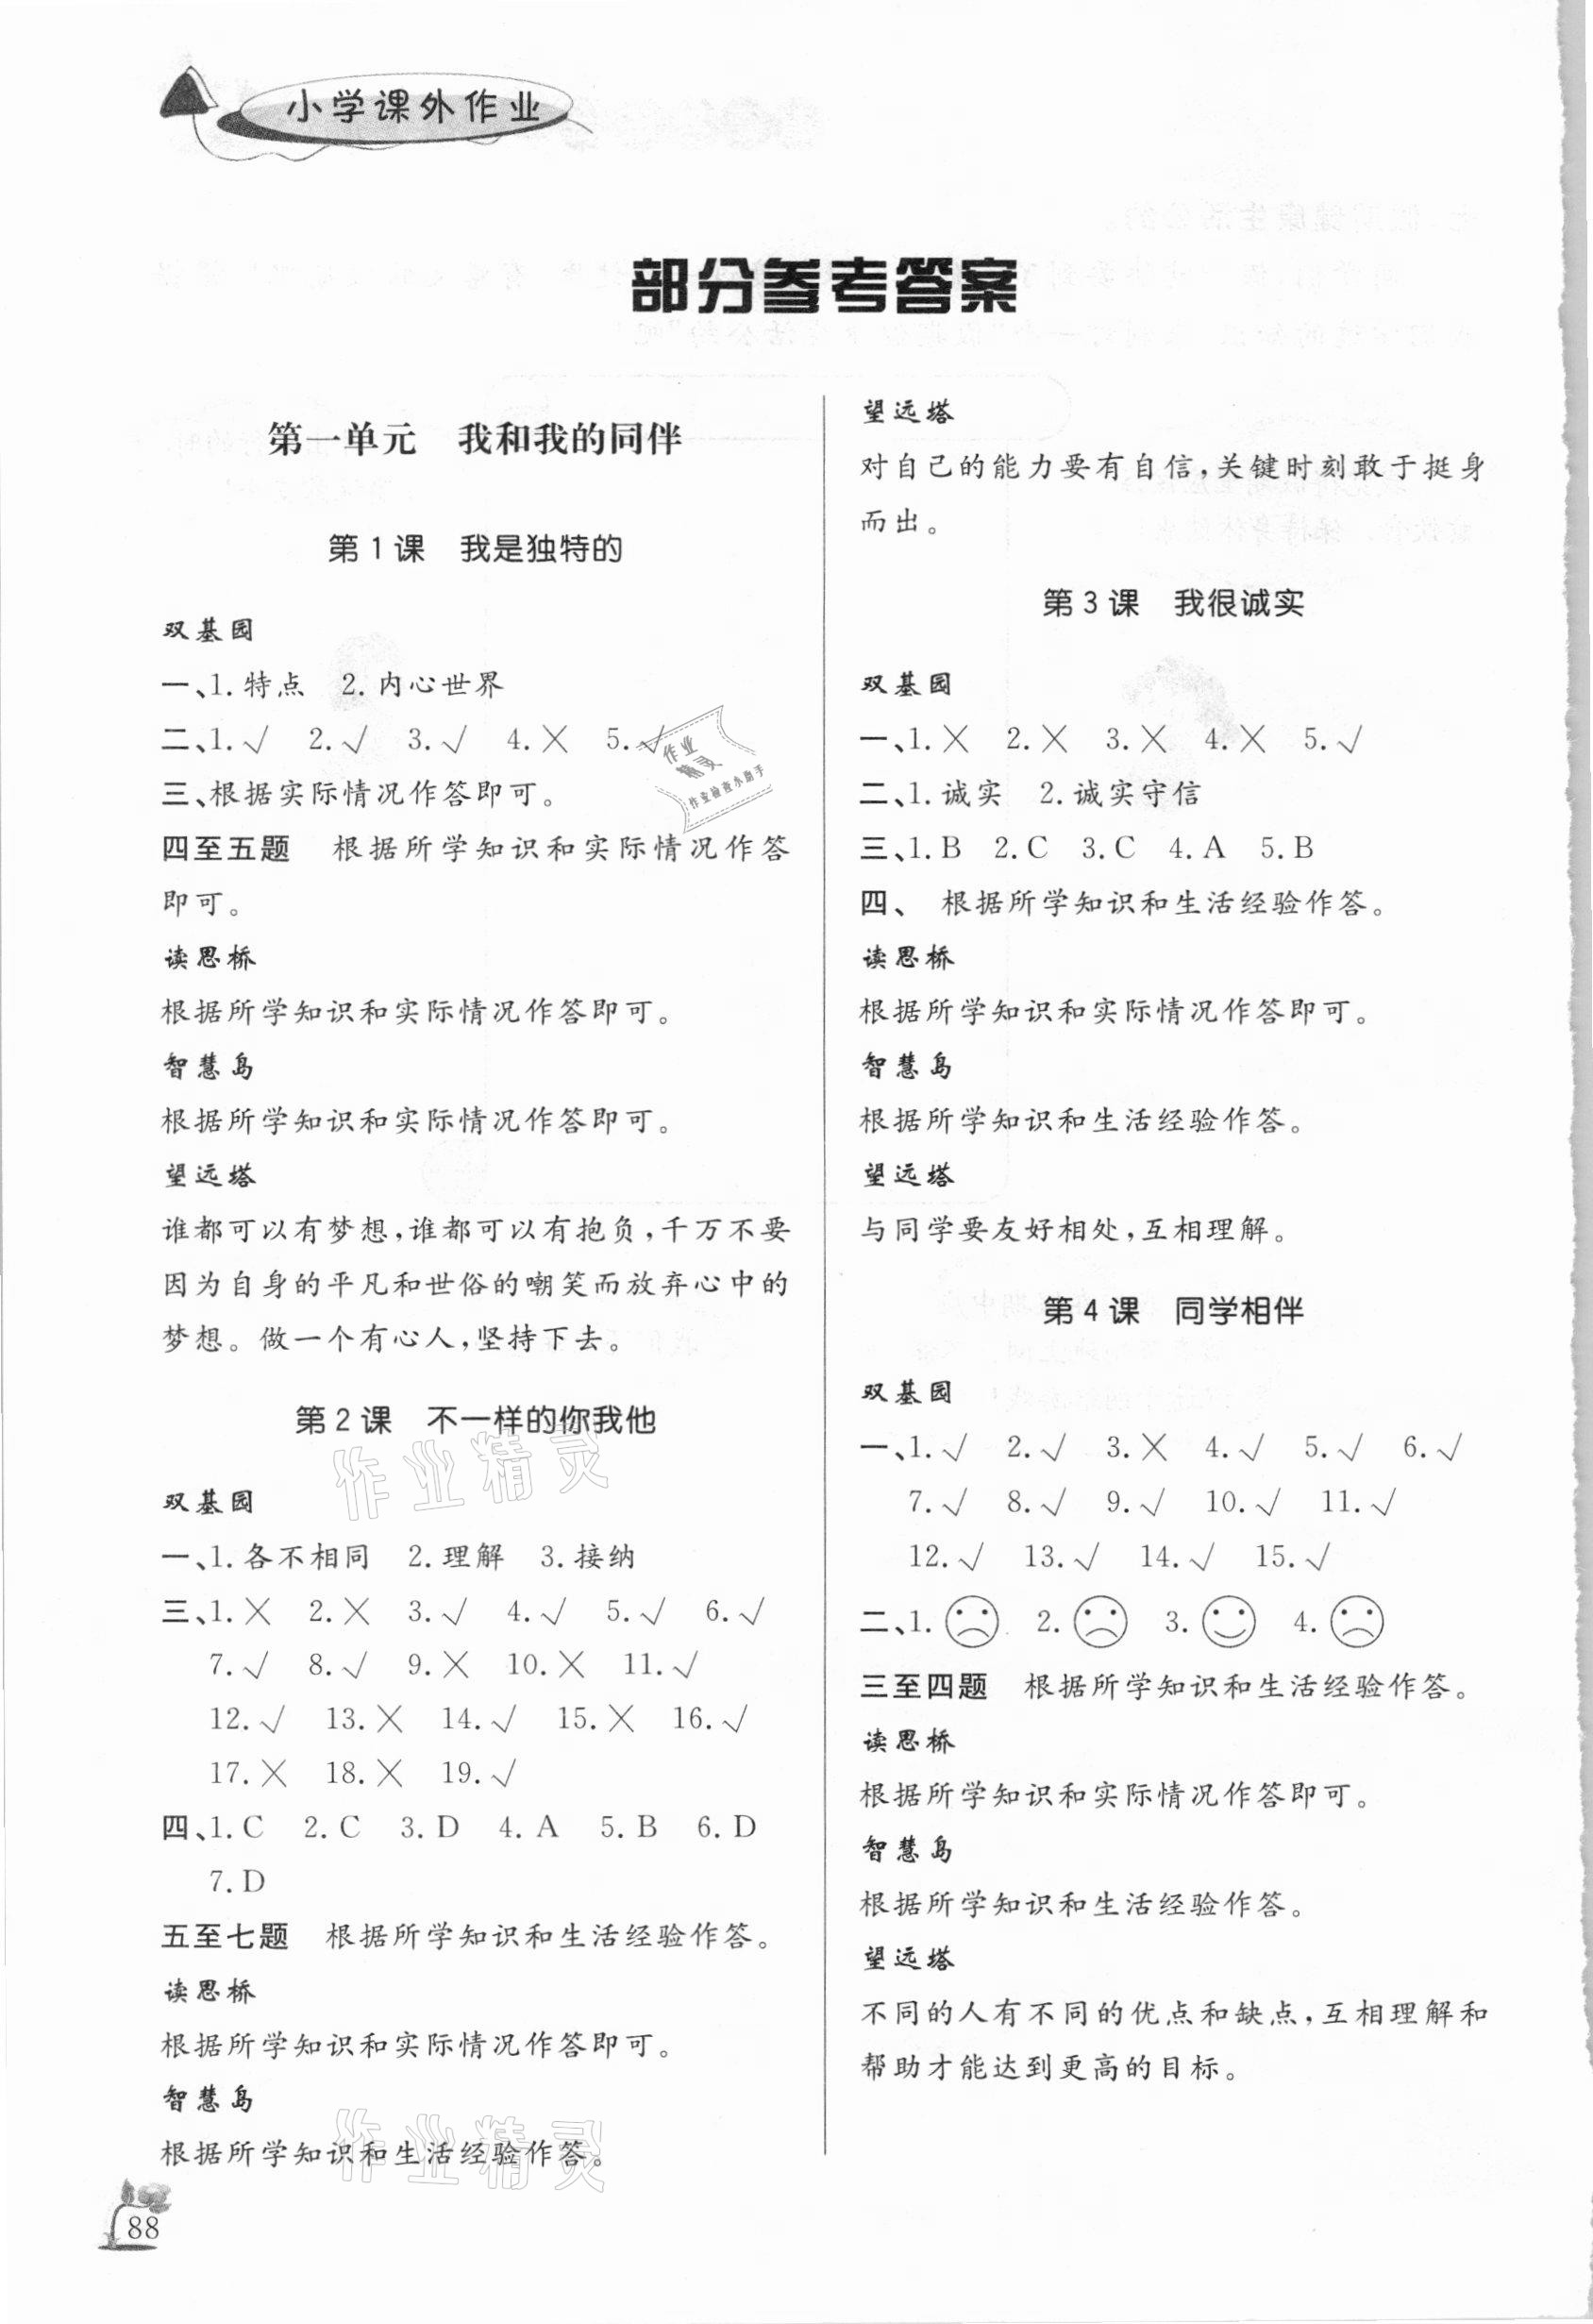 小学课外作业
部分参考答案
第一单元　我和我的同伴
第1课　我是独特的
双基园
一、1.特点　2.内心世界
二、1.√　2.√　3.√　4.╳　5.√
三、根据实际情况作答即可。
四至五题　根据所学知识和实际情况作答
即可。
读思桥
根据所学知识和实际情况作答即可。
智慧岛
根据所学知识和实际情况作答即可。
望远塔
谁都可以有梦想,谁都可以有抱负,千万不要
因为自身的平凡和世俗的嘲笑而放弃心中的
梦想。做一个有心人,坚持下去。
第2课　不一样的你我他
双基园
一、1.各不相同　2.理解　3.接纳
三、1.╳　2.╳　3.√　4.√　5.√　6.√
7.√　8.√　9.╳　10.╳　11.√
12.√　13.╳　14.√　15.╳　16.√
17.╳　18.╳　19.√
四、1.C　2.C　3.D　4.A　5.B　6.D
7.D
五至七题　根据所学知识和生活经验作答。
读思桥
根据所学知识和实际情况作答即可。
智慧岛
根据所学知识和生活经验作答。
88
望远塔
对自己的能力要有自信,关键时刻敢于挺身
而出。
第3课　我很诚实
双基园
一、1.╳　2.╳　3.╳　4.╳　5.√
二、1.诚实　2.诚实守信
三、1.B　2.C　3.C　4.A　5.B
四、　根据所学知识和生活经验作答。
读思桥
根据所学知识和实际情况作答即可。
智慧岛
根据所学知识和生活经验作答。
望远塔
与同学要友好相处,互相理解。
第4课　同学相伴
双基园
一、1.√　2.√　3.╳　4.√　5.√　6.√
7.√　8.√　9.√　10.√　11.√
12.√　13.√　14.√　15.√
二、1.　2.　3.　4.
三至四题　根据所学知识和生活经验作答。
读思桥
根据所学知识和实际情况作答即可。
智慧岛
根据所学知识和生活经验作答。
望远塔
不同的人有不同的优点和缺点,互相理解和
帮助才能达到更高的目标。
作业
精灵
作业检查小助手
作业精灵
作业精灵